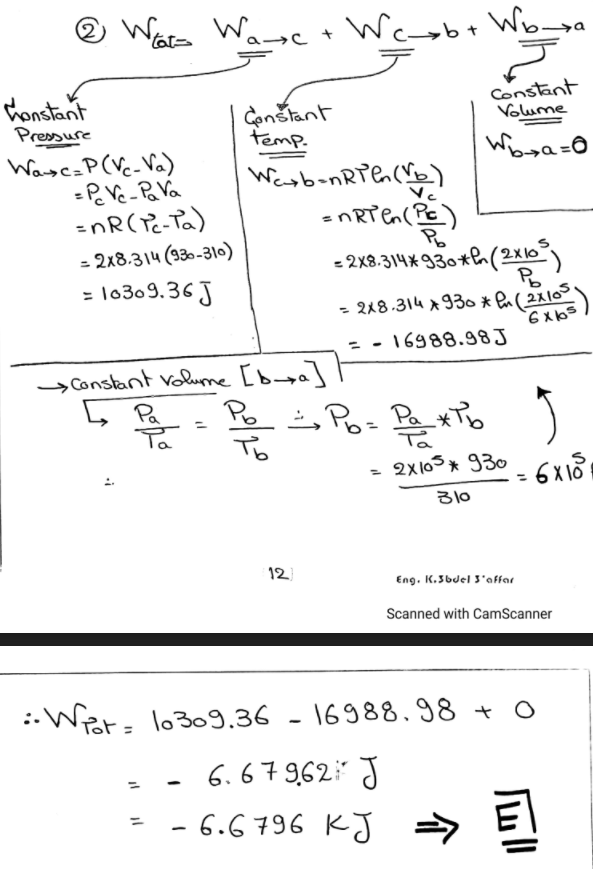 ② Wtot = Wa→c + Wc→b + Wb→a
Constant
Pressure
Wa→c = P(Vc - Va)
= PcVc - PaVa
= nR(Tc - Ta)
= 2x8.314(930-310)
= 10309.36 J
Constant
temp.
Wc→b = nRT ln(Vb/Vc)
= nRT ln(Pc/Pb)
= 2x8.314*930*ln(2x10⁵/Pb)
= 2x8.314*930*ln(2x10⁵/6x10⁵)
= - 16988.98 J
Constant
Volume
Wb→a = 0
→ Constant volume [b→a]
Pa/Ta = Pb/Tb ∴→ Pb = Pa/Ta * Tb
∴ = 2x10⁵ * 930/310 = 6x10⁵
12
Eng. K.3bdel 3'affar
Scanned with CamScanner
∴ WTot = 10309.36 - 16988.98 + 0
= - 6.67962 J
= - 6.6796 KJ ⇒ E